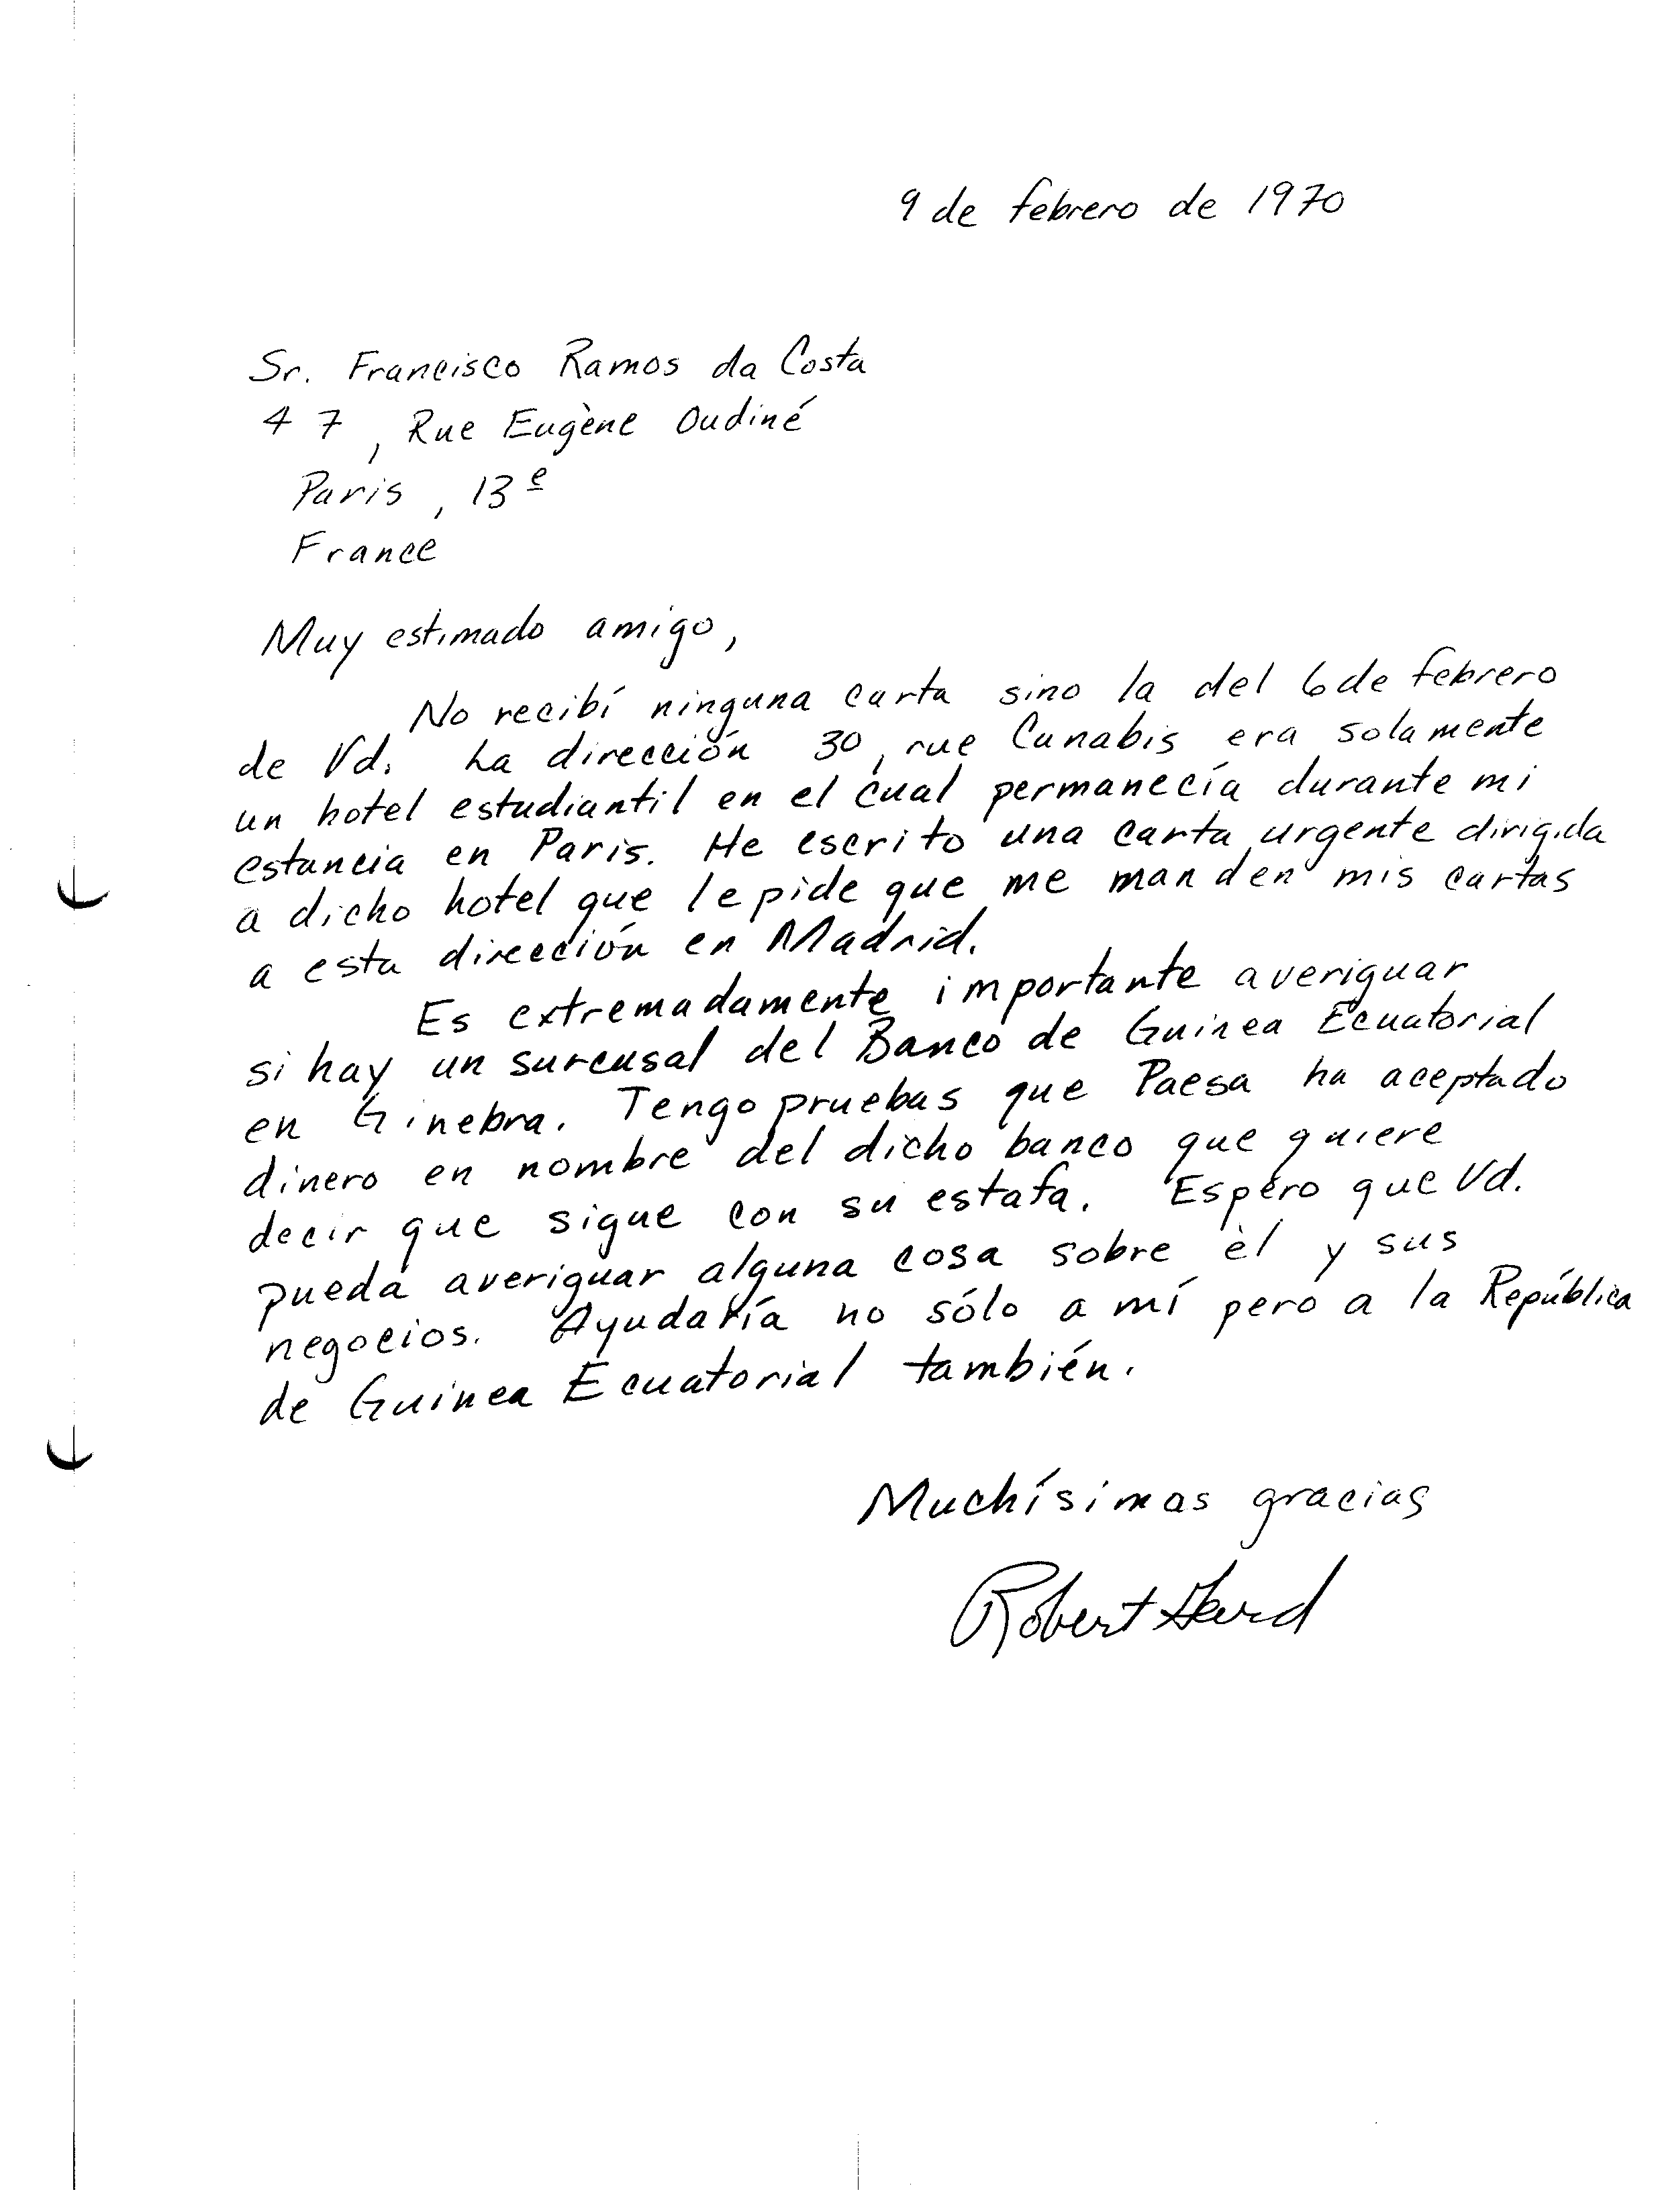 9 de febrero de 1970
Sr. Francisco Ramos da Costa
47, Rue Eugène Oudiné
Paris, 13e
France
Muy estimado amigo,
No recibí ninguna carta sino la del 6 de febrero
de Vd. La dirección 30, rue Cunabis era solamente
un hotel estudiantil en el cual permanecía durante mi
estancia en Paris. He escrito una carta urgente dirigida
a dicho hotel que le pide que me manden mis cartas
a esta dirección en Madrid.
Es extremadamente importante averiguar
si hay un surcusal del Banco de Guinea Ecuatorial
en Ginebra. Tengo pruebas que Paesa ha aceptado
dinero en nombre del dicho banco que quiere
decir que sigue con su estafa. Espero que Vd.
pueda averiguar alguna cosa sobre èl y sus
negocios. Ayudaría no sólo a mí pero a la República
de Guinea Ecuatorial también.
Muchísimas gracias
Robert